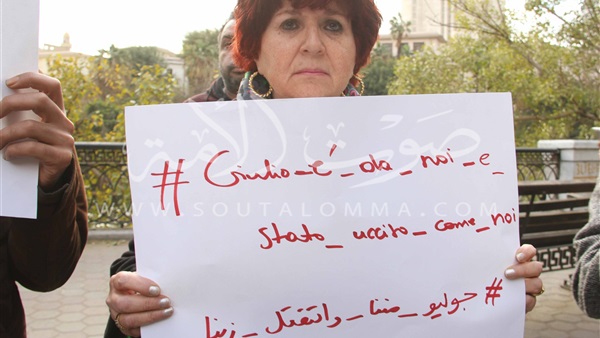 #Giulio_é_da_noi_e_
stato_ucciso_come_noi
#جوليو_مننا_واتقتل_زينا
صوت الأمة
WWW.SOUTALOMMA.COM